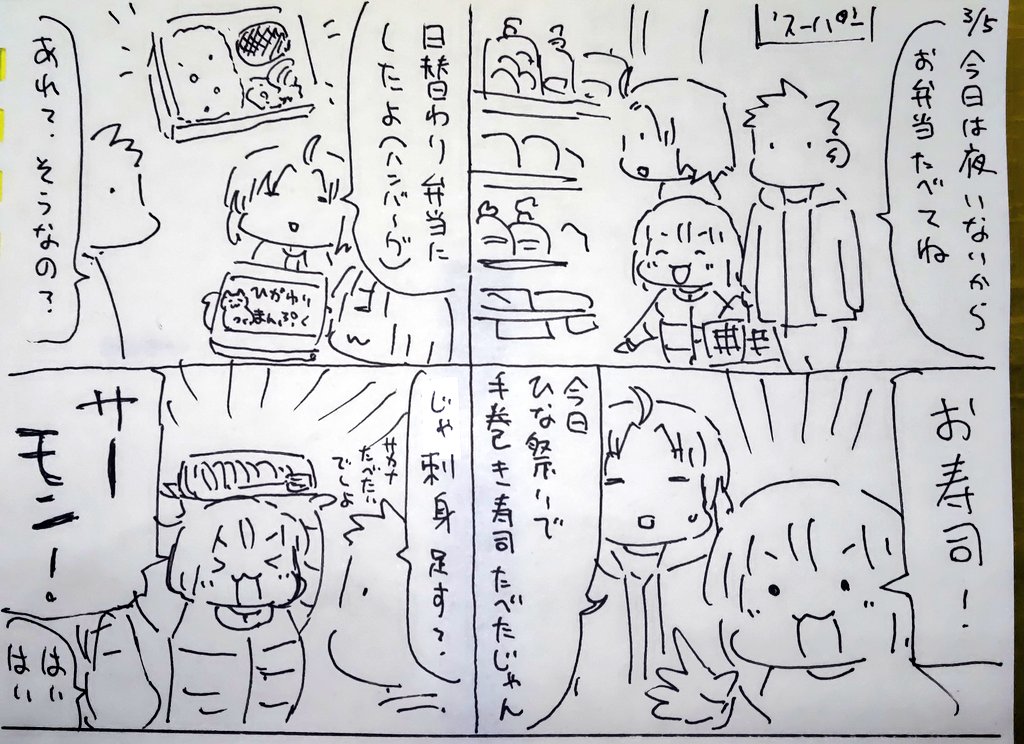 3/5
今日は夜いないから
お弁当たべてね
スーパー
お寿司!
今日
ひな祭りで
手巻き寿司たべたじゃん
日替わり弁当に
したよ(ハンバーグ)
ひがわり
まんぷく
あれ?そうなの?
じゃ刺身足す?
サカナ
たべたい
でしょ
サー
モン!
はい
はい